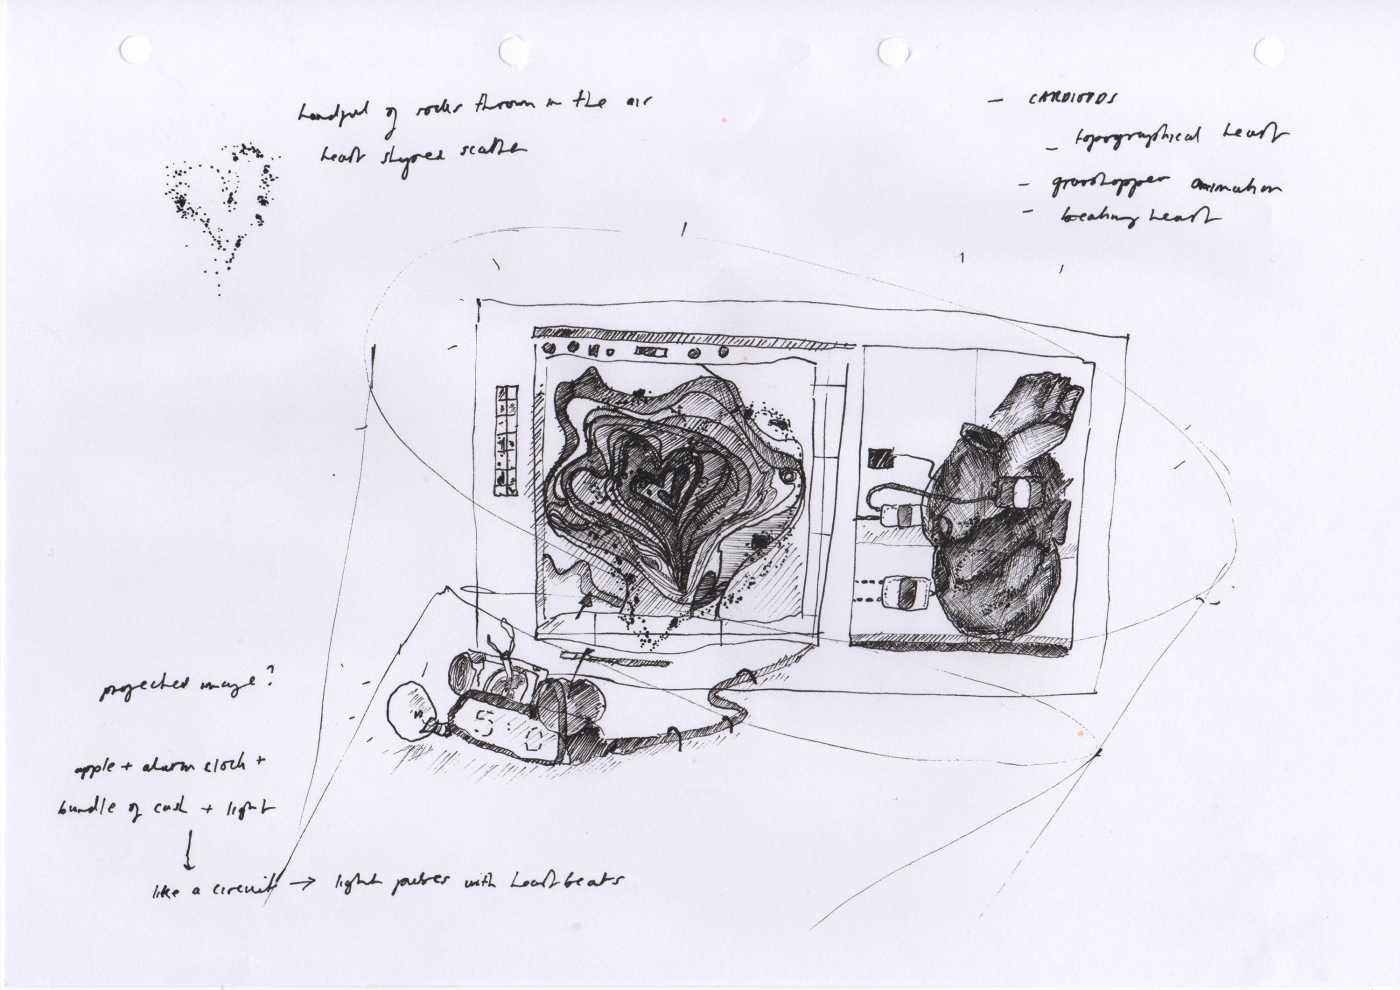 handful of rocks thrown in the air
heart shaped scatter
- CARDIOIDS
- topographical heart
- grasshopper animation
- beating heart
projected image?
apple + alarm clock +
bundle of cash + light
↓
like a circuit → light pulses with heartbeats
5:0